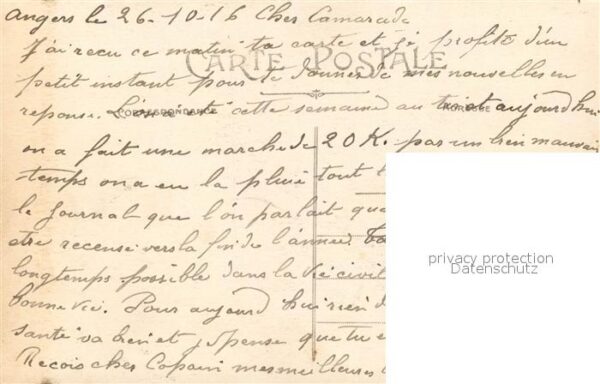 Angers le 26-10-16 Cher Camarade
J'ai recu ce matin ta carte et je profite d'un
CARTE POSTALE
petit instant pour te donner de mes nouvelles en
reponse. cette semaine au tir et aujourd'hui
CORRESPONDANCE ADRESSE
on a fait une marche de 20 K. par un bien mauvais
temps on a eu la pluie tout
le Journal que l'on parlait que
etre recensé vers la fin de l'année.
longtemps possible dans la vie civil
bonne vie. Pour aujourd'hui rien d
santé va bien et je pense que tu e
Recois cher Copain mes meilleures
privacy protection
Datenschutz